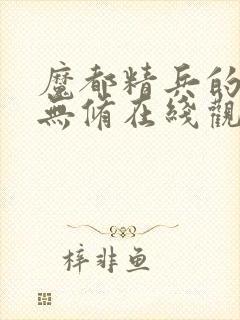 魔都精兵的
無脩在綫觀
梓非鱼